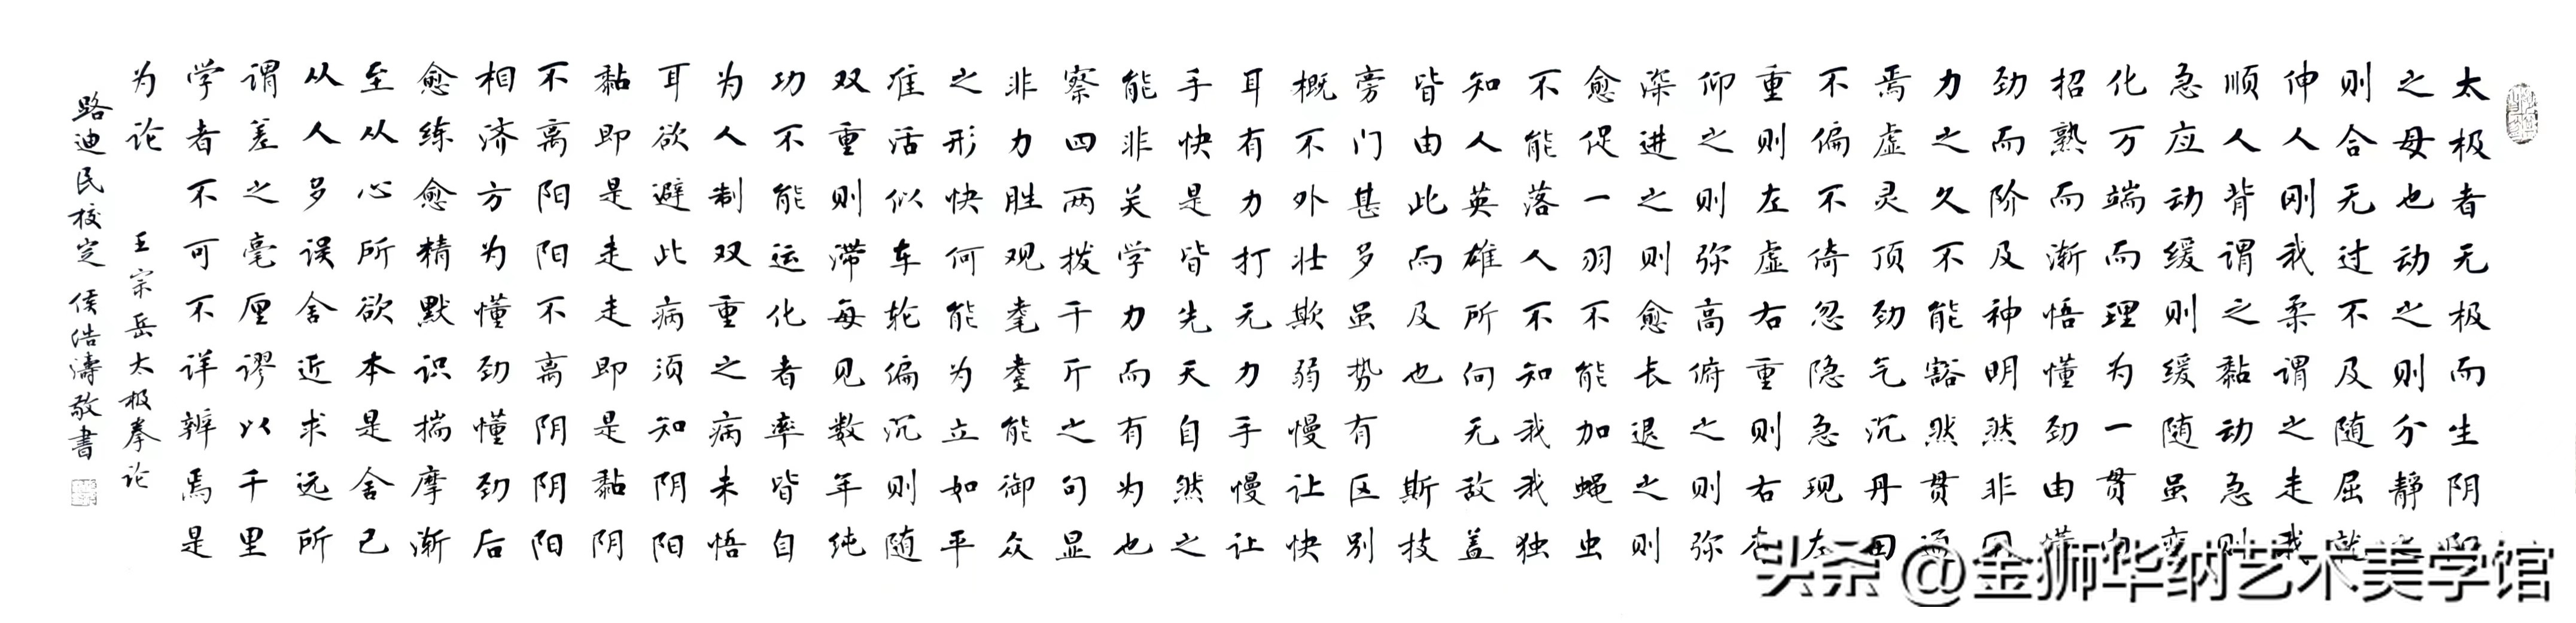 太极者无极而生阴阳
之母也动之则分静之
则合无过不及随屈就
伸人刚我柔谓之走我
顺人背谓之黏动急则
急应动缓则缓随虽变
化万端而理为一贯由
招熟而渐悟懂劲由懂
劲而阶及神明然非用
力之久不能豁然贯通
焉虚灵顶劲气沉丹田
不偏不倚忽隐忽现左
重则左虚右重则右杳
仰之则弥高俯之则弥
深进之则愈长退之则
愈促一羽不能加蝇虫
不能落人不知我我独
知人英雄所向无敌盖
皆由此而及也 斯技
旁门甚多虽势有区别
概不外壮欺弱慢让快
耳有力打无力手慢让
手快是皆先天自然之
能非关学力而有为也
察四两拨千斤之句显
非力胜观耄耋能御众
之形快何能为立如平
准活似车轮偏沉则随
双重则滞每见数年纯
功不能运化者率皆自
为人制双重之病未悟
耳欲避此病须知阴阳
黏即是走走即是黏阴
不离阳阳不离阴阴阳
相济方为懂劲懂劲后
愈练愈精默识揣摩渐
至从心所欲本是舍己
从人多误舍近求远所
谓差之毫厘谬以千里
学者不可不详辨焉是
为论 王宗岳太极拳论
路迪民校定 侯浩涛敬書
头条 @金狮华纳艺术美学馆